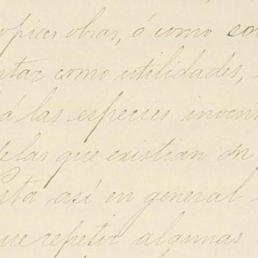 opices obras, ó como son
star como utilidades,
á las especies inven
elas que existian en
sta así en general
que repetir algunas